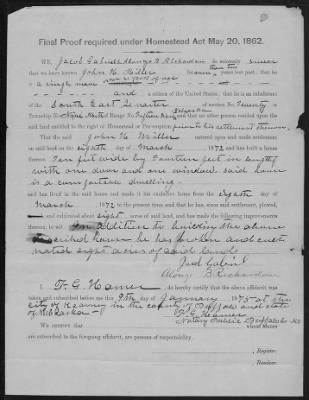 Final Proof required under Homestead Act May 20, 1862.
WE, Jacob Gabriel Alonzo B. Richardson do solemnly swear
that we have known John H. Miller for years last past; that he
is a single man over 21 years of age
and a citizen of the United States; that he is an inhabitant
of the South East Quarter of section No. Twenty in
Township No. Nine North of Range No. Fifteen West and that no other person resided upon the said
land entitled to the right of Homestead or Pre-emption prior to his settlement thereon.
That the said John H. Miller entered upon and made settlement
on said land on the eighth day of March 1872 and had a house thereon
Ten feet wide by Fourteen feet in length
with one door and one window said house
is a comfortable dwelling
and has lived in the said house and made it his exclusive home from the eighth day of
March 1872 to the present time, and that he has, since said settlement, plowed,
and cultivated about eight acres of said land, and has made the following improvements
thereon, to wit: In addition to building the above
described house he has broken and culti-
vated eight acres of said land
Jacob Gabriel
Alonzo B. Richardson
I, F. G. Hamer, do hereby certify that the above affidavit was
taken and subscribed before me this 9th day of January 1875 at the
City of Kearney in the county of Buffalo and state
of Nebraska
F. G. Hamer
Notary Public Buffalo Co
We CERTIFY that whose names
are subscribed to the foregoing affidavit, are persons of respectability.
, Register.
, Receiver.